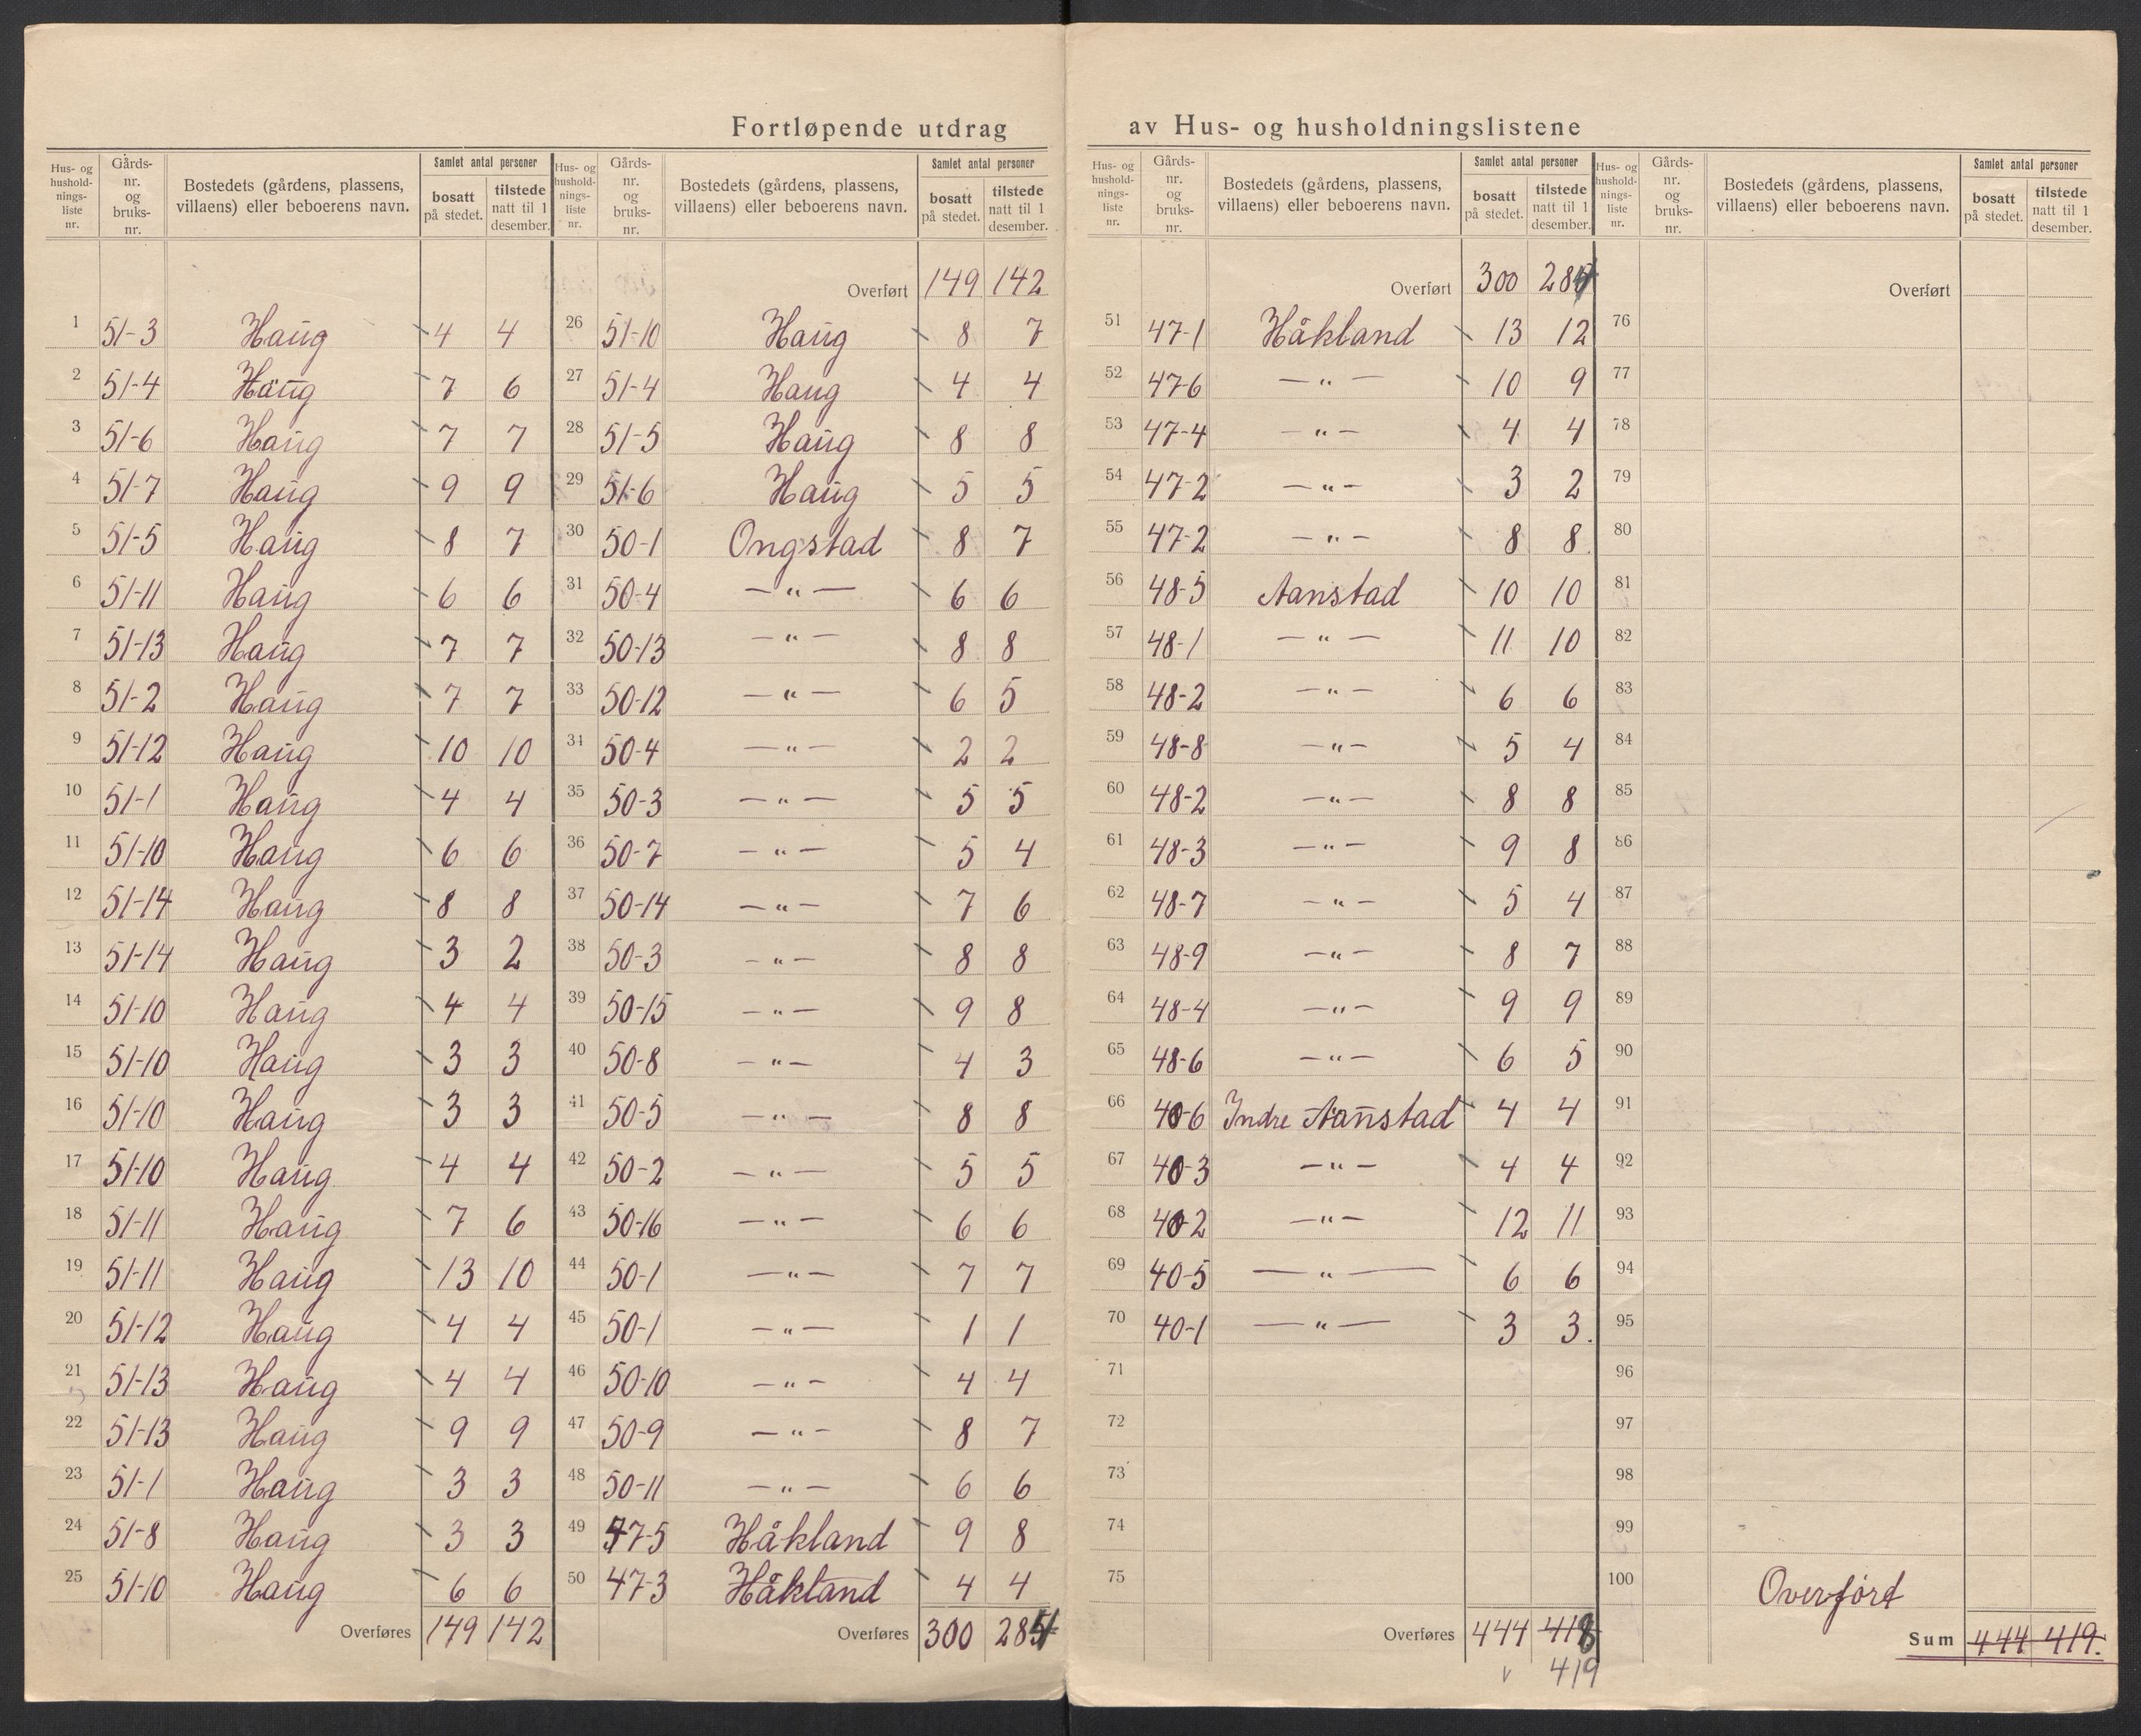 Fortløpende utdrag av Hus- og husholdningslistene
Hus- og husholdnings-liste nr. | Gårds-nr. og bruks-nr. | Bostedets (gårdens, plassens, villaens) eller beboerens navn. | Samlet antal personer bosatt på stedet. | tilstede natt til 1 desember.
1 51-3 Haug 4 4
2 51-4 Haug 7 6
3 51-6 Haug 7 7
4 51-7 Haug 9 9
5 51-5 Haug 8 7
6 51-11 Haug 6 6
7 51-13 Haug 7 7
8 51-2 Haug 7 7
9 51-12 Haug 10 10
10 51-1 Haug 4 4
11 51-10 Haug 6 6
12 51-14 Haug 8 8
13 51-14 Haug 3 2
14 51-10 Haug 4 4
15 51-10 Haug 3 3
16 51-10 Haug 3 3
17 51-10 Haug 4 4
18 51-11 Haug 7 6
19 51-11 Haug 13 10
20 51-12 Haug 4 4
21 51-13 Haug 4 4
22 51-13 Haug 9 9
23 51-1 Haug 3 3
24 51-8 Haug 3 3
25 51-10 Haug 6 6
Overføres 149 142
Hus- og husholdnings-liste nr. | Gårds-nr. og bruks-nr. | Bostedets (gårdens, plassens, villaens) eller beboerens navn. | Samlet antal personer bosatt på stedet. | tilstede natt til 1 desember.
Overført 149 142
26 51-10 Haug 8 7
27 51-4 Haug 4 4
28 51-5 Haug 8 8
29 51-6 Haug 5 5
30 50-1 Ongstad 8 7
31 50-4 — " — 6 6
32 50-13 — " — 8 8
33 50-12 — " — 6 5
34 50-4 — " — 2 2
35 50-3 — " — 5 5
36 50-7 — " — 5 4
37 50-14 — " — 7 6
38 50-3 — " — 8 8
39 50-15 — " — 9 8
40 50-8 — " — 4 3
41 50-5 — " — 8 8
42 50-2 — " — 5 5
43 50-16 — " — 6 6
44 50-1 — " — 7 7
45 50-1 — " — 1 1
46 50-10 — " — 4 4
47 50-9 — " — 8 7
48 50-11 — " — 6 6
49 47-5 Håkland 9 8
50 47-3 Håkland 4 4
Overføres 300 284
Hus- og husholdnings-liste nr. | Gårds-nr. og bruks-nr. | Bostedets (gårdens, plassens, villaens) eller beboerens navn. | Samlet antal personer bosatt på stedet. | tilstede natt til 1 desember.
Overført 300 284
51 47-1 Håkland 13 12
52 47-6 — " — 10 9
53 47-4 — " — 4 4
54 47-2 — " — 3 2
55 47-2 — " — 8 8
56 48-5 Aanstad 10 10
57 48-1 — " — 11 10
58 48-2 — " — 6 6
59 48-8 — " — 5 4
60 48-2 — " — 8 8
61 48-3 — " — 9 8
62 48-7 — " — 5 4
63 48-9 — " — 8 7
64 48-4 — " — 9 9
65 48-6 — " — 6 5
66 40-6 Indre Aanstad 4 4
67 40-3 — " — 4 4
68 40-2 — " — 12 11
69 40-5 — " — 6 6
70 40-1 — " — 3 3.
71
72
73
74
75
Overføres 444 418
419
Hus- og husholdnings-liste nr. | Gårds-nr. og bruks-nr. | Bostedets (gårdens, plassens, villaens) eller beboerens navn. | Samlet antal personer bosatt på stedet. | tilstede natt til 1 desember.
Overført
76
77
78
79
80
81
82
83
84
85
86
87
88
89
90
91
92
93
94
95
96
97
98
99
100 Overført
Sum 444 419.